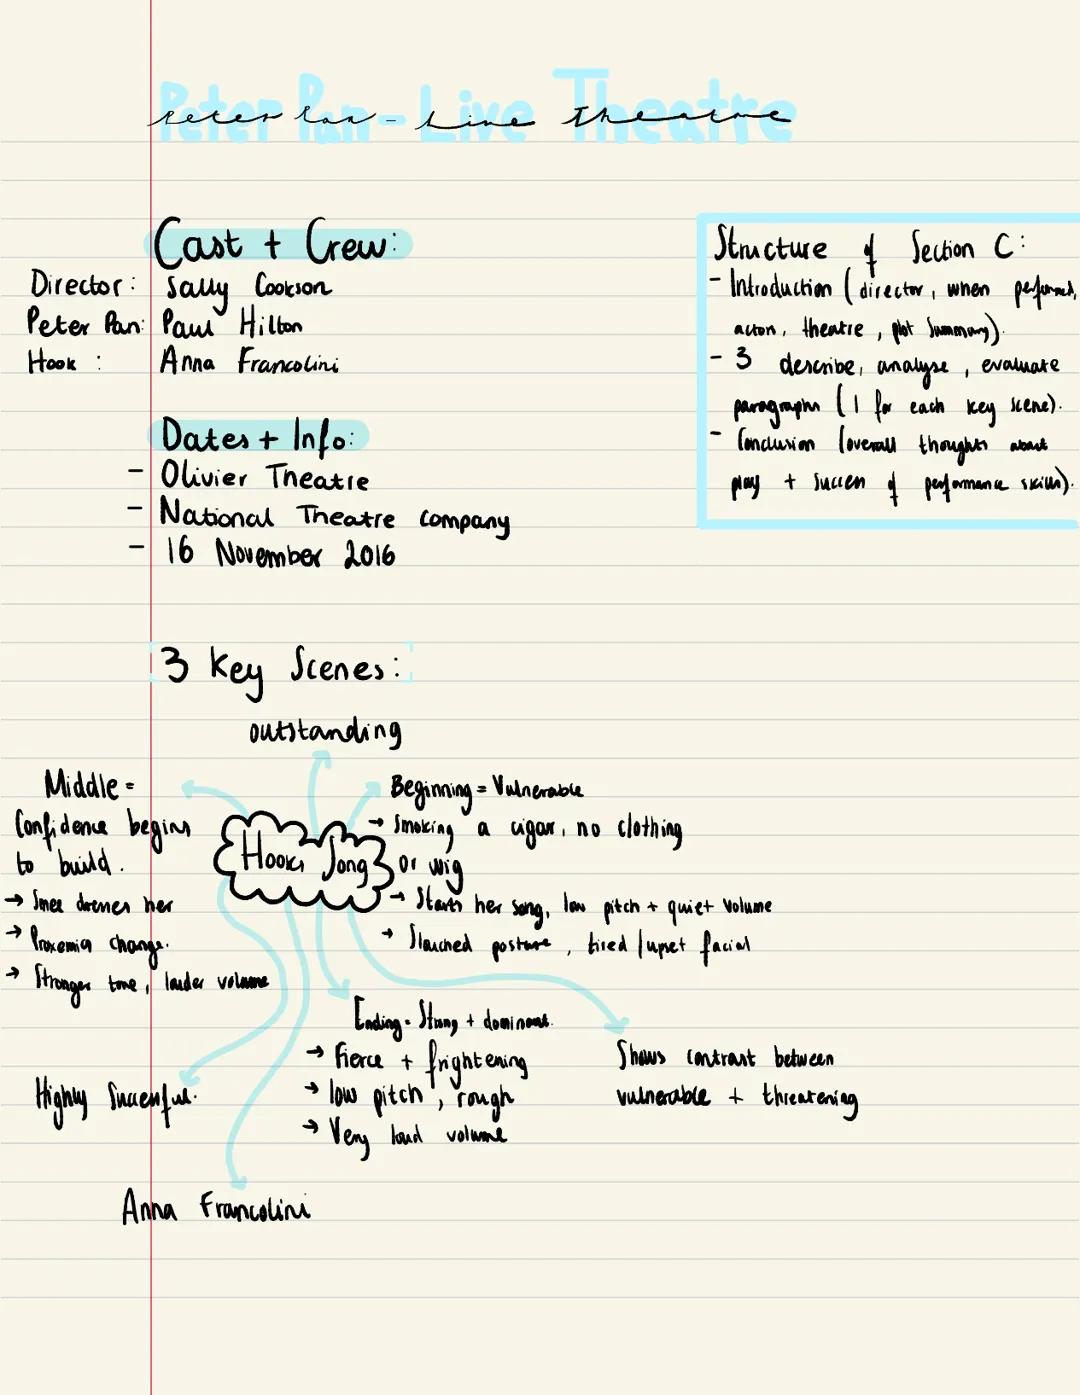 Peter Pan - Live Theatre
Cast + Crew:
Director: Sally Cookson
Peter Pan: Paul Hilton
Hook: Anna Francolini
Dates + Info:
- Olivier Theatre
- National Theatre company
- 16 November 2016
Structure of Section C:
- Introduction (director, when performed,
actor, theatre, plot summary).
- 3 describe, analyse, evaluate
paragraphs (1 for each key scene).
- Conclusion (overall thoughts about
play + success of performance skills).
3 Key Scenes:
outstanding
Hooks Song
Beginning = Vulnerable
→ Smoking a cigar, no clothing
or wig
→ Starts her song, low pitch + quiet volume
→ Slouched posture, tired/upset facial
Middle =
Confidence begins
to build.
→ Smee dresses her
→ Proxemics change.
→ Stronger tone, louder volume
Ending = Strong + dominant.
→ Fierce + frightening
→ low pitch, rough
→ Very loud volume
Shows contrast between
vulnerable + threatening
Highly Successful.
Anna Francolini